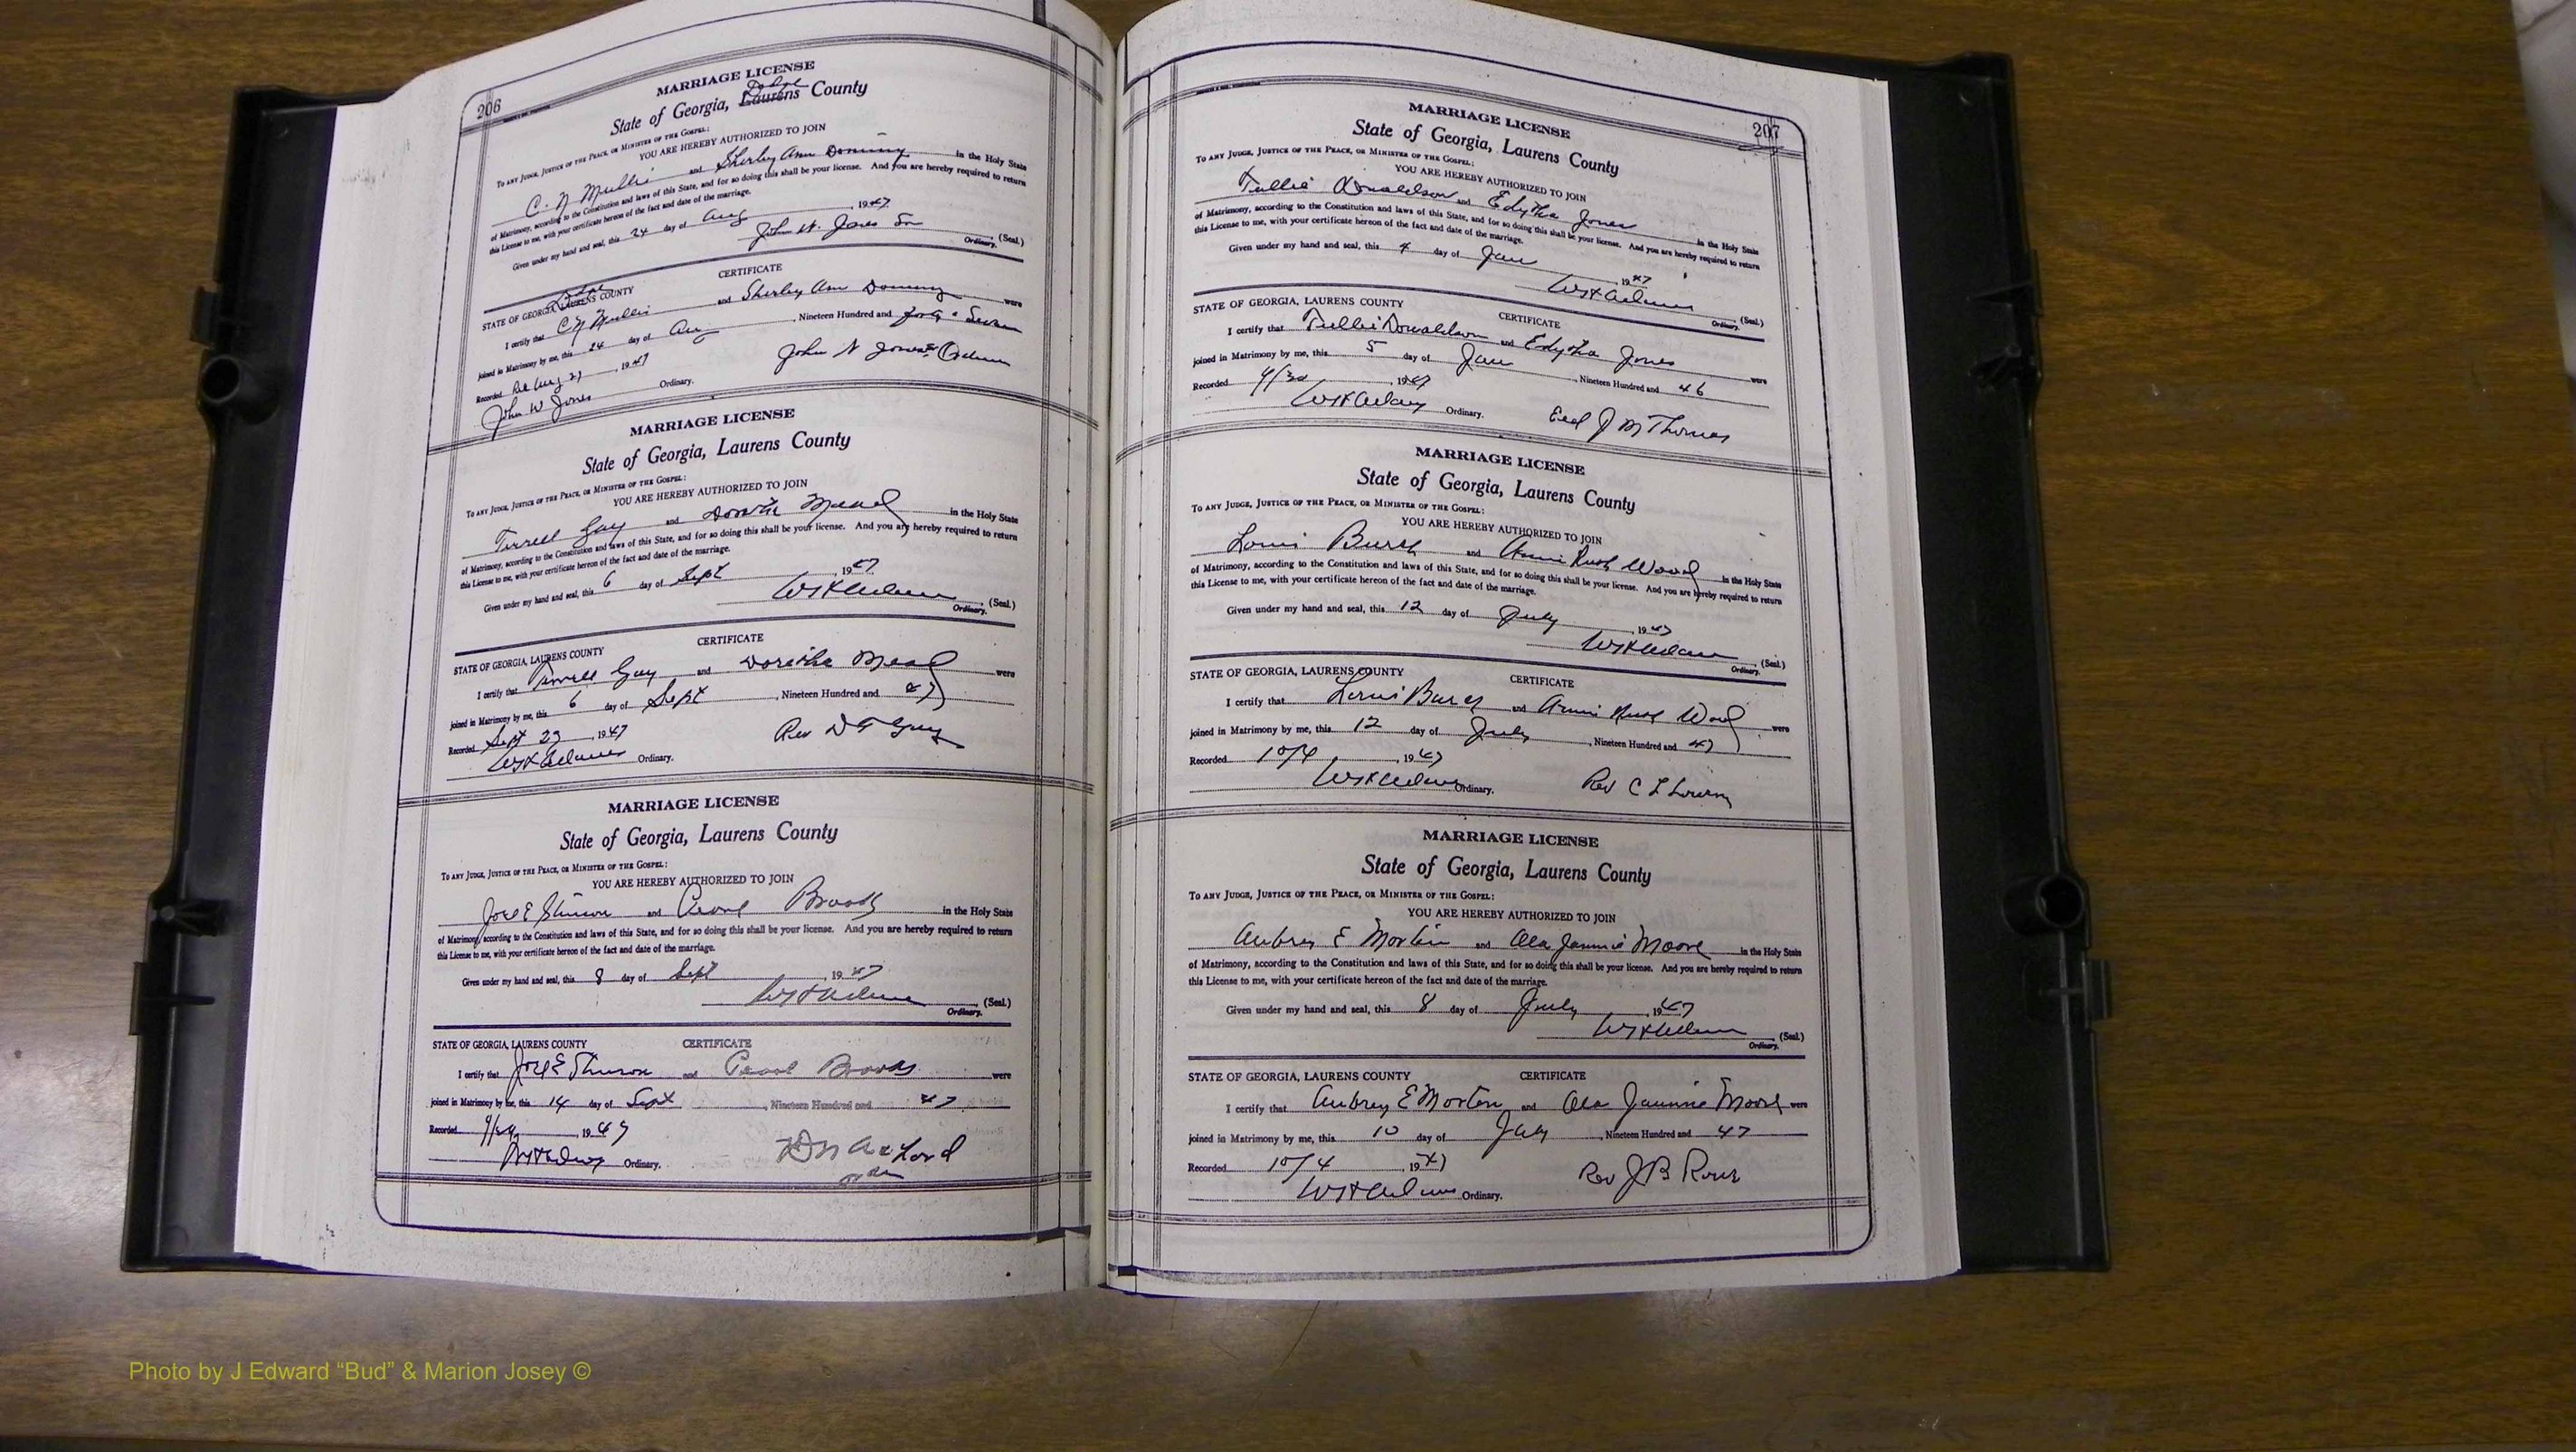 206
MARRIAGE LICENSE
Dodge
State of Georgia, Laurens County
To any Judge, Justice of the Peace, or Minister of the Gospel:
YOU ARE HEREBY AUTHORIZED TO JOIN
C. N Mullis and Sherley Ann Dominy in the Holy State
of Matrimony, according to the Constitution and laws of this State, and for so doing this shall be your license. And you are hereby required to return
this License to me, with your certificate hereon of the fact and date of the marriage.
Given under my hand and seal, this 24 day of Aug, 1947
John N. Jones (Seal.)
Ordinary.
CERTIFICATE
Dodge
STATE OF GEORGIA, LAURENS COUNTY
I certify that C N Mullis and Sherley Ann Dominy were
joined in Matrimony by me, this 24 day of Aug, Nineteen Hundred and Seven
Recorded Aug, 1947 John N Jones
John W Jones Ordinary.
MARRIAGE LICENSE
State of Georgia, Laurens County
To any Judge, Justice of the Peace, or Minister of the Gospel:
YOU ARE HEREBY AUTHORIZED TO JOIN
Terrell Gay and in the Holy State
of Matrimony, according to the Constitution and laws of this State, and for so doing this shall be your license. And you are hereby required to return
this License to me, with your certificate hereon of the fact and date of the marriage.
Given under my hand and seal, this 6 day of Sept, 1947
(Seal.)
Ordinary.
CERTIFICATE
STATE OF GEORGIA, LAURENS COUNTY
I certify that Terrell Gay and were
joined in Matrimony by me, this 6 day of Sept, Nineteen Hundred and 47
Recorded Sept 23, 1947 Rev D T Gay
Ordinary.
MARRIAGE LICENSE
State of Georgia, Laurens County
To any Judge, Justice of the Peace, or Minister of the Gospel:
YOU ARE HEREBY AUTHORIZED TO JOIN
Joel E Stinson and Brooks in the Holy State
of Matrimony, according to the Constitution and laws of this State, and for so doing this shall be your license. And you are hereby required to return
this License to me, with your certificate hereon of the fact and date of the marriage.
Given under my hand and seal, this 8 day of Sept, 1947
(Seal.)
Ordinary.
STATE OF GEORGIA, LAURENS COUNTY CERTIFICATE
I certify that Joel E Stinson and Brooks were
joined in Matrimony by me, this 14 day of Sept, Nineteen Hundred and 47
Recorded, 1947
Ordinary.
207
MARRIAGE LICENSE
State of Georgia, Laurens County
To any Judge, Justice of the Peace, or Minister of the Gospel:
YOU ARE HEREBY AUTHORIZED TO JOIN
Tullie Donaldson and Edytha Jones in the Holy State
of Matrimony, according to the Constitution and laws of this State, and for so doing this shall be your license. And you are hereby required to return
this License to me, with your certificate hereon of the fact and date of the marriage.
Given under my hand and seal, this 4 day of Jan, 1947
(Seal.)
Ordinary.
STATE OF GEORGIA, LAURENS COUNTY CERTIFICATE
I certify that Tullie Donaldson and Edytha Jones were
joined in Matrimony by me, this 5 day of Jan, Nineteen Hundred and 46
Recorded 9/30, 1947
Ordinary. J M Thomas
MARRIAGE LICENSE
State of Georgia, Laurens County
To any Judge, Justice of the Peace, or Minister of the Gospel:
YOU ARE HEREBY AUTHORIZED TO JOIN
Louis Burch and Annie Ruth Wood in the Holy State
of Matrimony, according to the Constitution and laws of this State, and for so doing this shall be your license. And you are hereby required to return
this License to me, with your certificate hereon of the fact and date of the marriage.
Given under my hand and seal, this 12 day of July, 1947
(Seal.)
Ordinary.
STATE OF GEORGIA, LAURENS COUNTY CERTIFICATE
I certify that Louis Burch and Annie Ruth Wood were
joined in Matrimony by me, this 12 day of July, Nineteen Hundred and 47
Recorded 10/4, 1947
Ordinary. Rev C L
MARRIAGE LICENSE
State of Georgia, Laurens County
To any Judge, Justice of the Peace, or Minister of the Gospel:
YOU ARE HEREBY AUTHORIZED TO JOIN
Aubrey E Morton and Ola Jannie Moore in the Holy State
of Matrimony, according to the Constitution and laws of this State, and for so doing this shall be your license. And you are hereby required to return
this License to me, with your certificate hereon of the fact and date of the marriage.
Given under my hand and seal, this 8 day of July, 1947
(Seal.)
Ordinary.
STATE OF GEORGIA, LAURENS COUNTY CERTIFICATE
I certify that Aubrey E Morton and Ola Jannie Moore were
joined in Matrimony by me, this 10 day of July, Nineteen Hundred and 47
Recorded 10/4, 1947 Rev J B
Ordinary.
Photo by J Edward “Bud” & Marion Josey ©